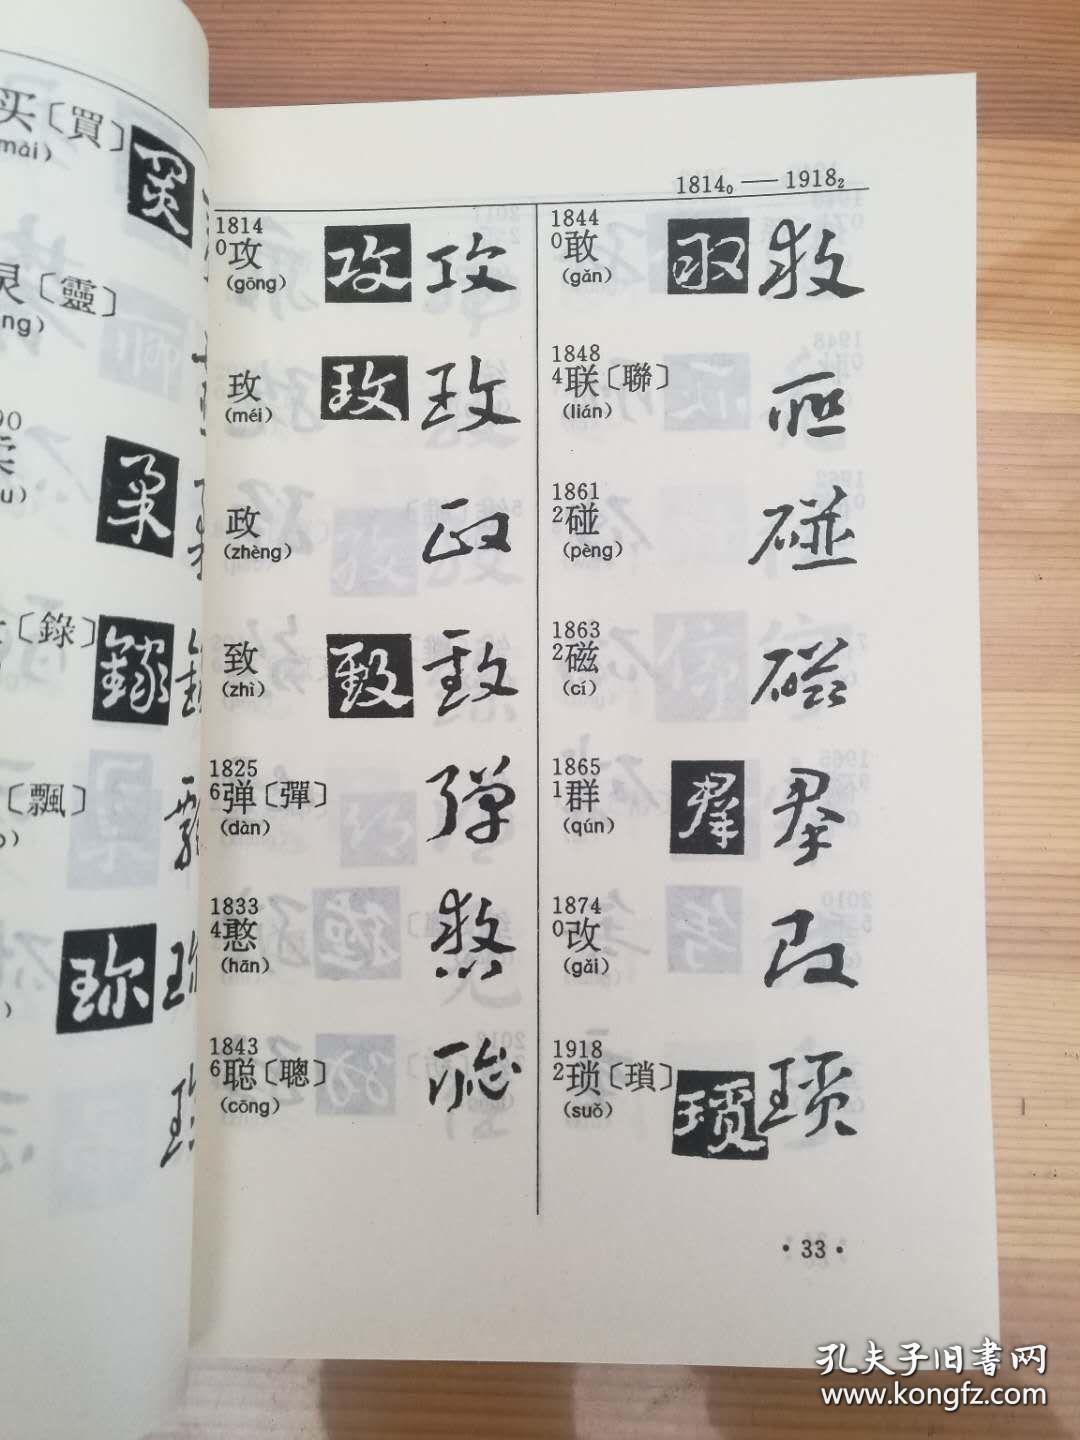 买〔買〕
mài)
灵〔靈〕
ng)
90
柔
u)
〔錄〕
〔飄〕
1814₀——1918₂
1814
0攻
(gōng)
玫
(méi)
政
(zhèng)
致
(zhì)
1825
6弹〔彈〕
(dàn)
1833
4憨
(hān)
1843
6聪〔聰〕
(cōng)
1844
0敢
(gǎn)
1848
4联〔聯〕
(lián)
1861
2碰
(pèng)
1863
2磁
(cí)
1865
1群
(qún)
1874
0改
(gǎi)
1918
2琐〔瑣〕
(suǒ)
·33·
孔夫子旧書网
www.kongfz.com